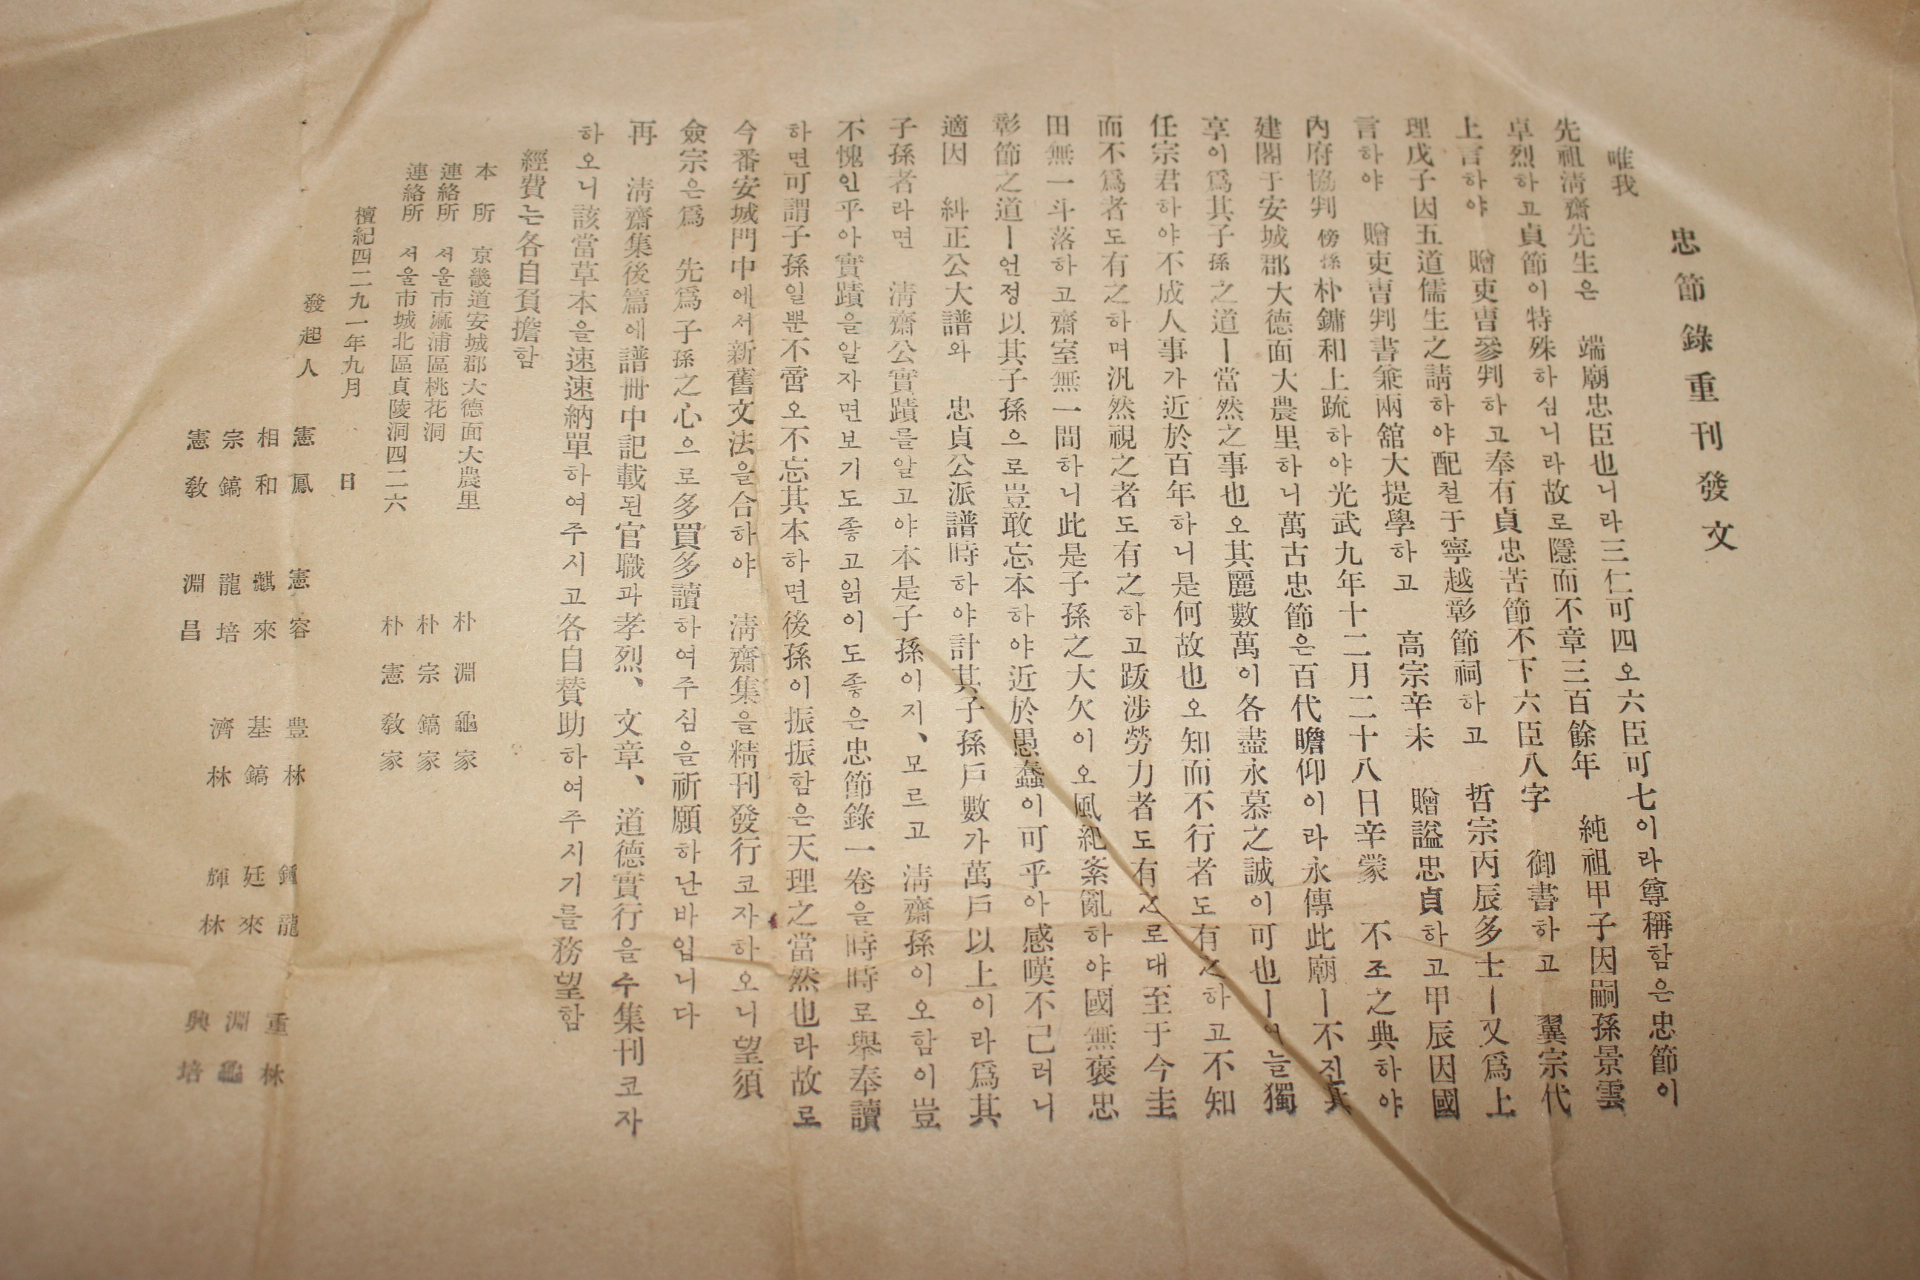 忠節錄重刊發文
唯我
先祖淸齋先生은 端廟忠臣也니라三仁可四오六臣可七이라尊稱함은忠節이
卓烈하고貞節이特殊하심니라故로隱而不章三百餘年 純祖甲子因嗣孫景雲
上言하야 贈吏曺參判하고奉有貞忠苦節不下六臣八字 御書하고 翼宗代
理戊子因五道儒生之請하야配철于寧越彰節祠하고 哲宗丙辰多士ㅣ又爲上
言하야 贈吏曺判書兼兩舘大提學하고 高宗辛未 贈謚忠貞하고甲辰因國
內府協判傍孫朴鏞和上䟽하야光武九年十二月二十八日辛蒙 不조之典하야
建閣于安城郡大德面大農里하니萬古忠節은百代瞻仰이라永傳此廟ㅣ不진其
享이爲其子孫之道ㅣ當然之事也오其麗數萬이各盡永慕之誠이可也ㅣ어늘獨
任宗君하야不成人事가近於百年하니是何故也오知而不行者도有之하고不知
而不爲者도有之하며汎然視之者도有之하고跋涉勞力者도有之로대至于今圭
田無一斗落하고齋室無一間하니此是子孫之大欠이오風紀紊亂하야國無褒忠
彰節之道ㅣ언정以其子孫으로豈敢忘本하야近於愚蠢이可乎아感嘆不己러니
適因 糾正公大譜와 忠貞公派譜時하야計其子孫戶數가萬戶以上이라爲其
子孫者라면 淸齋公實蹟를알고야本是子孫이지、모르고 淸齋孫이오함이豈
不愧인乎아實蹟을알자면보기도좋고읽이도좋은忠節錄一卷을時時로舉奉讀
하면可謂子孫일뿐不啻오不忘其本하면後孫이振振함은天理之當然也라故로
今番安城門中에서新舊文法을合하야 淸齋集을精刊發行코자하오니望須
僉宗은爲 先爲子孫之心으로多買多讀하여주심을祈願하난바입니다
再 淸齋集後篇에譜冊中記載된官職과孝烈、文章、道德實行을수集刊코자
하오니該當草本을速速納單하여주시고各自賛助하여주시기를務望함
經費는各自負擔함
本所 京畿道安城郡大德面大農里 朴淵龜家
連絡所 서울市麻浦區桃花洞 朴宗鎬家
連絡所 서울市城北區貞陵洞四二六 朴憲敎家
檀紀四二九一年九月 日
發起人
憲鳳 憲容 豊林 鍾龍 重林
相和 麒來 基鎬 廷來 淵龜
宗鎬 龍培 濟林 輝林 興培
憲敎 淵昌